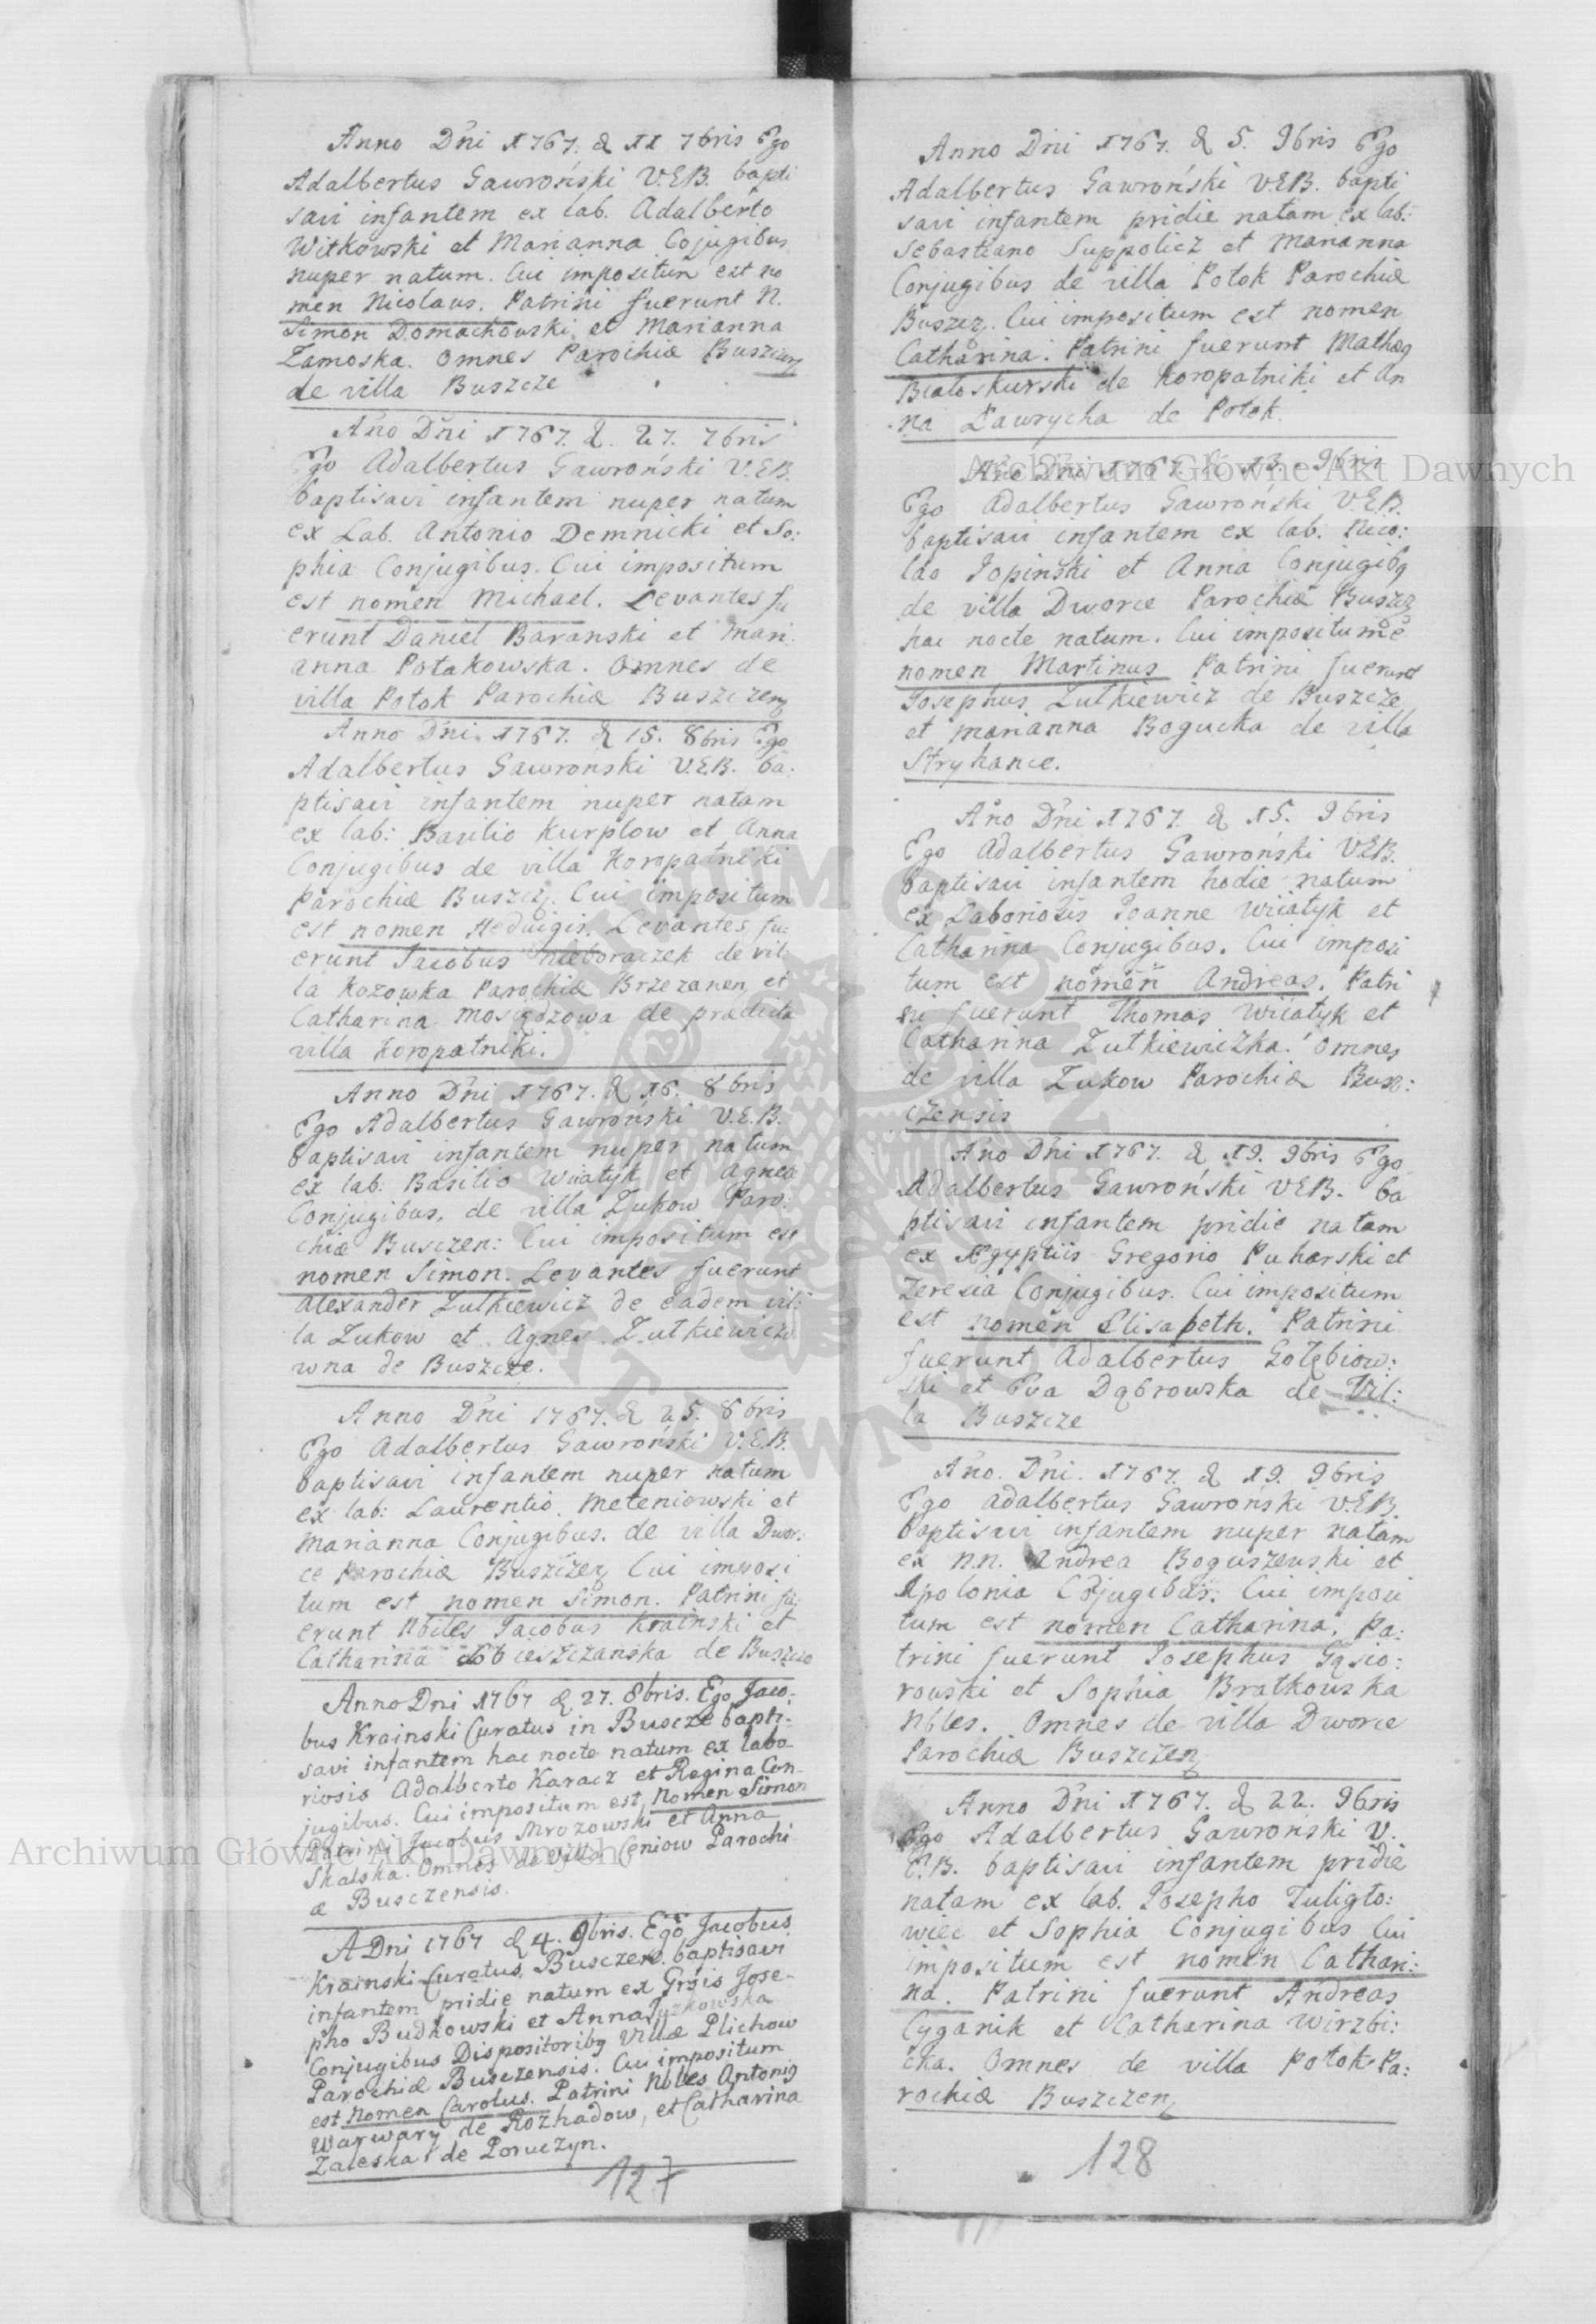 Anno Dni 1767. d 11 7bris Ego
Adalbertus Gawroński V.E.B. bapti
savi infantem ex lab. Adalberto
Witkowski et Marianna Cojugibus
nuper natum. Cui impositum est no
men Nicolaus. Patrini fuerunt N.
Simon Domachowski et Marianna
Zamoska. Omnes Parochiæ Buszczen
de villa Buszcze
Ano Dni 1767. d. 27. 7bris
Ego Adalbertus Gawroński V.E.B.
baptisavi infantem nuper natum
ex Lab. Antonio Demnicki et So:
phia Conjugibus. Cui impositum
est nomen Michael. Levantes fu
erunt Daniel Baranski et Mari
anna Potakowska. Omnes de
villa Potok Parochiæ Buszczen
Anno Dni. 1767. d 15. 8bris Ego
Adalbertus Gawronski V.E.B. ba:
ptisavi infantem nuper natam
ex lab: Basilio Kurplow et Anna
Conjugibus de villa Koropatniki
Parochiæ Buszcz. Cui impositum
est nomen Heduigis. Levantes fu:
erunt Jacobus Nieboraczek de vil:
la Kozowka Parochiæ Brzezanen et
Catharina de prædicta
villa Koropatniki.
Anno Dni 1767. d 16. 8bris
Ego Adalbertus Gawroński V.E.B.
baptisavi infantem nuper natum
ex lab: Basilio Wiiatyk et Agnea
Conjugibus, de villa Zukow Paro:
chiæ Busczen: Cui impositum est
nomen Simon. Levantes fuerunt
Alexander Zutkiewicz de eadem vil:
la Zukow et Agnes Zutkiewiczo
wna de Buszcze.
Anno Dni 1767. d 25. 8bris
Ego Adalbertus Gawroński V.E.B.
baptisavi infantem nuper natum
ex lab: Laurentio Meteniowski et
Marianna Conjugibus. de villa Dwor:
ce Parochiæ Buszczen Cui imposi
tum est nomen Simon. Patrini fu:
erunt Nbiles Jacobus Krainski et
Catharina Dobieszczanska de Buszcze
Anno Dni 1767 d 27. 8bris. Ego Jaco-
bus Krainski Curatus in Buscze bapti-
savi infantem hac nocte natum ex labo-
riosis Adalberto Karacz et Regina Con-
jugibus. Cui impositum est Nomen Simon
Patrini Jacobus Mrozowski et Anna
Skalska. Omnes de villa Ceniow Parochi
æ Busczensis.
A Dni 1767 d 4. 9bris. Ego Jacobus
Krainski Curatus Busczens. baptisavi
infantem pridie natum ex Grsis Jose-
pho Budkowski et Anna Juzkowska
Conjugibus Dispositoribq Villæ Plichow
Parochiæ Busczensis. Cui impositum
est Nomen Carolus. Patrini Nbles Antoniq
Warwary de Rozhadow, et Catharina
Zaleska de Poruczyn.
127
Anno Dni 1767. d 5. 9bris Ego
Adalbertus Gawroński V.E.B. bapti
savi infantem pridie natam ex lab:
Sebastiano Suppolicz et Marianna
Conjugibus de villa Potok Parochiæ
Buszcz. Cui impositum est nomen
Catharina. Patrini fuerunt Mathæq
Białoskurski de Koropatniki et An
na Ławrycha de Potok.
Ano Dni 1767. d 13. 9bris
Ego Adalbertus Gawroński V.E.B.
baptisavi infantem ex lab. Nico:
lao Jopinski et Anna Conjugibq
de villa Dworce Parochiæ Buszcz
hac nocte natum. Cui impositum e
nomen Martinus Patrini fuerunt
Josephus Zutkiewicz de Buszcze
et Marianna Bogucka de villa
Stryhance.
Ano Dni 1767 d 15. 9bris
Ego Adalbertus Gawroński V.E.B.
baptisavi infantem hodie natum
ex Laboriosis Joanne Wiiatyk et
Catharina Conjugibus. Cui imposi
tum est nomen Andreas. Patri
ni fuerunt Thomas Wiiatyk et
Catharina Zutkiewiczka. Omnes
de villa Zukow Parochiæ Busz:
czensis
Ano Dni 1767. d 19. 9bris Ego
Adalbertus Gawroński V.E.B. ba
ptisavi infantem pridie natam
ex Ægyptiis Gregorio Puharski et
Teresia Conjugibus. Cui impositum
est nomen Elisabeth. Patrini
fuerunt Adalbertus Gołębiow:
ski et Eva Dąbrowska de Vil:
la Buszcze
Ano. Dni. 1767. d 19. 9bris
Ego Adalbertus Gawroński V.E.B.
baptisavi infantem nuper natam
ex N.N. Andrea Boguszewski et
Apolonia Cojugibus. Cui imposi
tum est nomen Catharina. Pa:
trini fuerunt Josephus Gąsio:
rowski et Sophia Bratkowska
Nbles. Omnes de villa Dworce
Parochiæ Buszczen
Anno Dni 1767. d 22. 9bris
Ego Adalbertus Gawronski V.
E.B. baptisavi infantem pridie
natam ex lab. Josepho Tuligło:
wiec et Sophia Conjugibus Cui
impositum est nomen Cathari:
na. Patrini fuerunt Andreas
Cyganik et Catharina Wirzbi:
cka. Omnes de villa Potok Pa:
rochiæ Buszczen
128
Archiwum Główne Akt Dawnych
Archiwum Główne Akt Dawnych